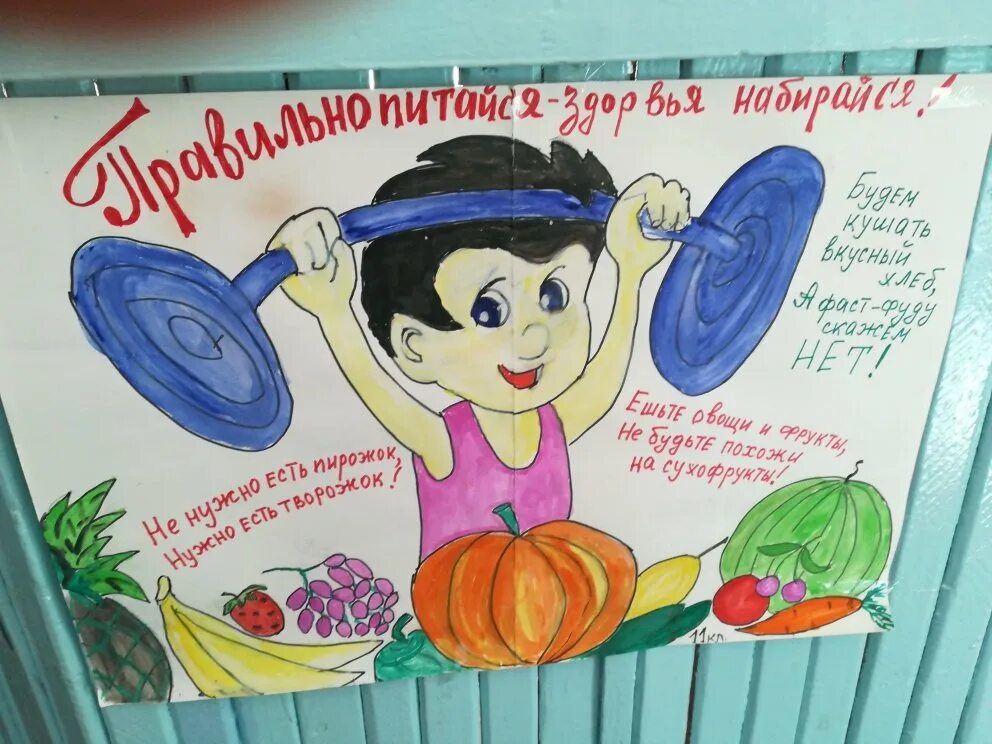 Правильно питайся - здоровья набирайся!
Будем
кушать
вкусный
хлеб,
А фаст-фуду
скажем
НЕТ!
Ешьте овощи и фрукты,
Не будьте похожи
на сухофрукты!
Не нужно есть пирожок,
Нужно есть творожок!
11 кл.